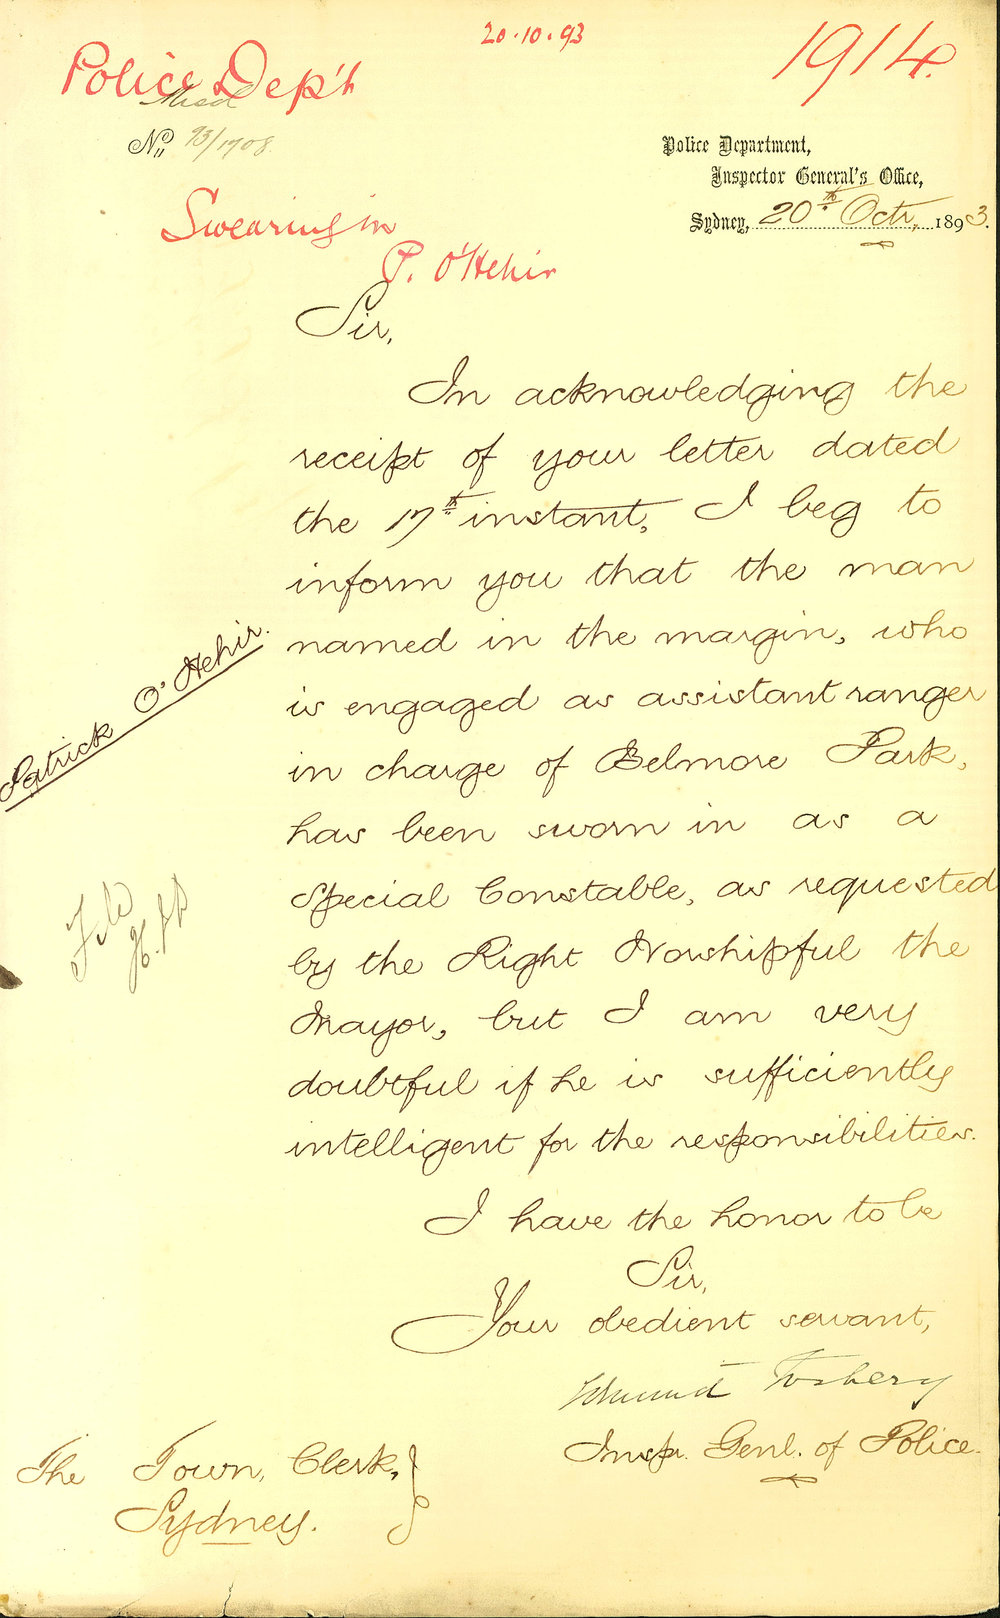 20.10.93
1914.
Police Dep't
No. 93/1708
Police Department,
Inspector General's Office,
Sydney, 20th Octr. 1893.
Swearing in
P. O'Hehir
Sir,
In acknowledging the
receipt of your letter dated
the 17th instant, I beg to
inform you that the man
named in the margin, who
Patrick O'Hehir.
is engaged as assistant ranger
in charge of Belmore Park,
has been sworn in as a
Special Constable, as requested
by the Right Worshipful the
Mayor, but I am very
doubtful if he is sufficiently
intelligent for the responsibilities.
File
I have the honor to be
Sir,
Your obedient servant,
Edmund Fosbery
Inspr. Genl. of Police.
The Town Clerk,
Sydney.